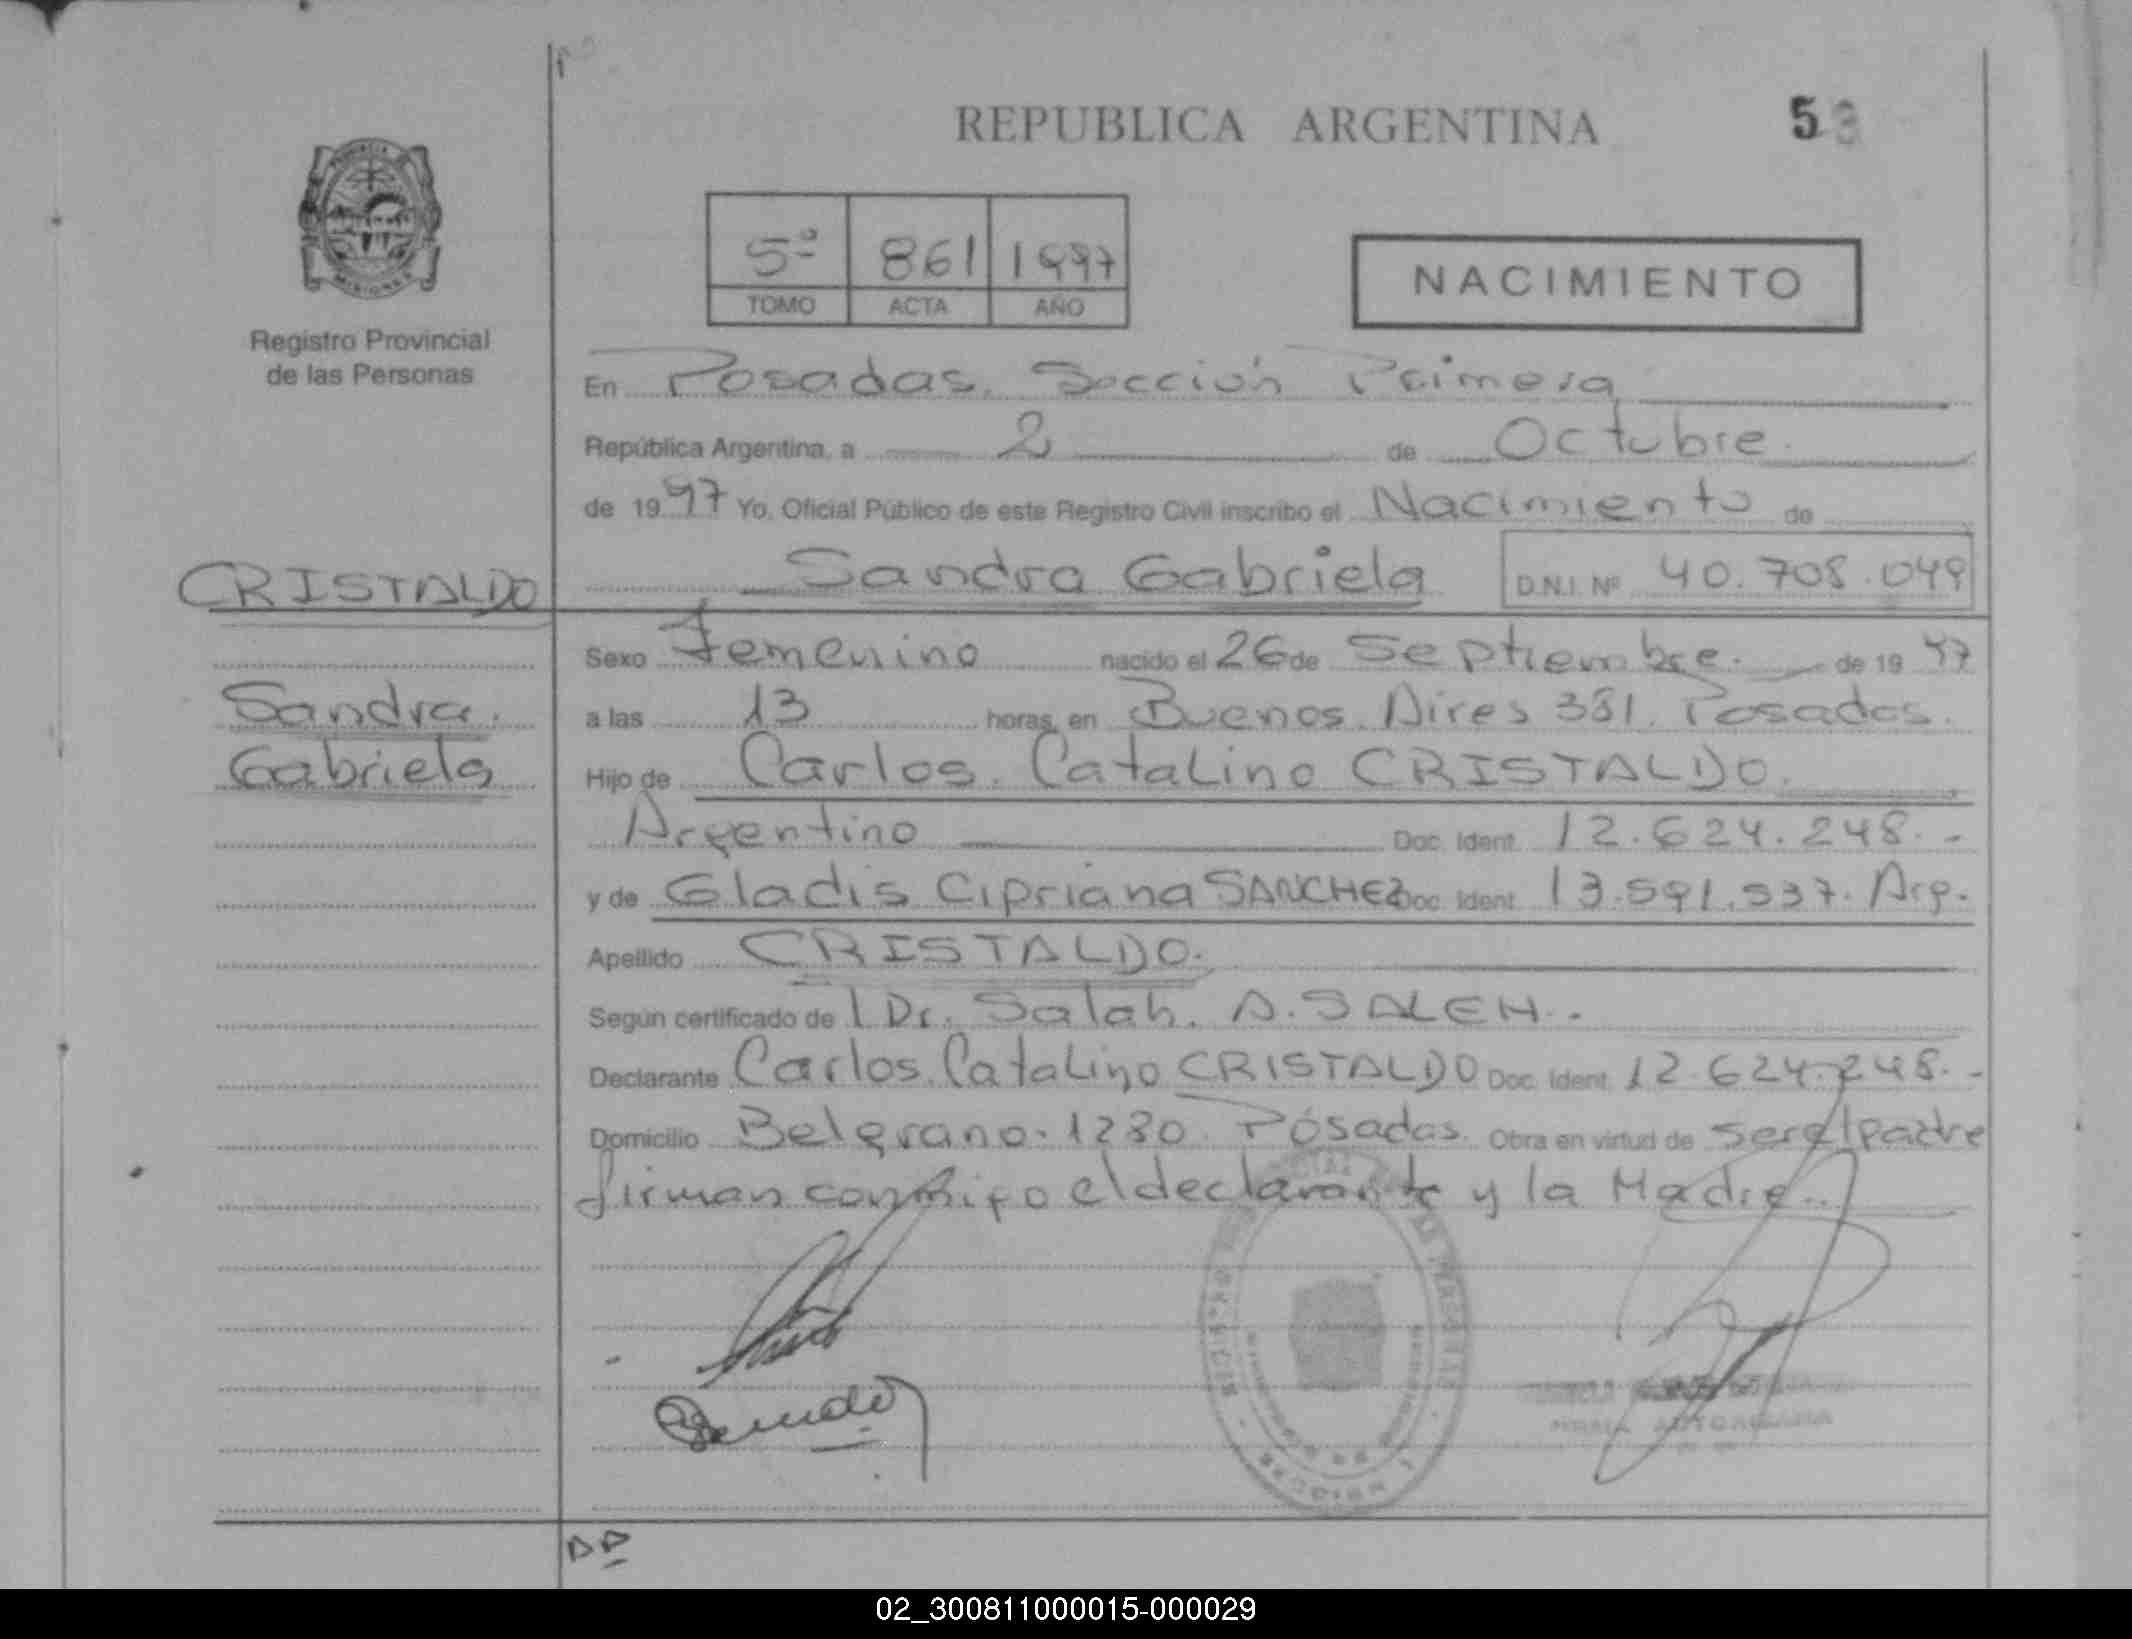 REPUBLICA ARGENTINA
53
PROVINCIA
MISIONES
Registro Provincial
de las Personas
5º 861 1997
TOMO ACTA AÑO
NACIMIENTO
En Posadas. Sección Primera
República Argentina, a 2 de Octubre.
de 1997 Yo, Oficial Público de este Registro Civil inscribo el Nacimiento de
Sandra Gabriela D.N.I. Nº 40.708.049
CRISTALDO
Sandra.
Gabriela
Sexo Femenino nacido el 26 de Septiembre. de 1997
a las 13 horas, en Buenos Aires 381. Posadas.
Hijo de Carlos. Catalino CRISTALDO.
Argentino Doc. Ident. 12.624.248.-
y de Gladis Cipriana SANCHEZ Doc. Ident. 13.591.537. Arg.
Apellido CRISTALDO.
Según certificado de l Dr. Salah. A. SALEH.
Declarante Carlos. Catalino CRISTALDO Doc. Ident. 12.624.248.-
Domicilio Belgrano. 1280. Posadas. Obra en virtud de ser el padre
firman conmigo el declarante y la Madre.
FIRMA AUTORIZADA
02_300811000015-000029